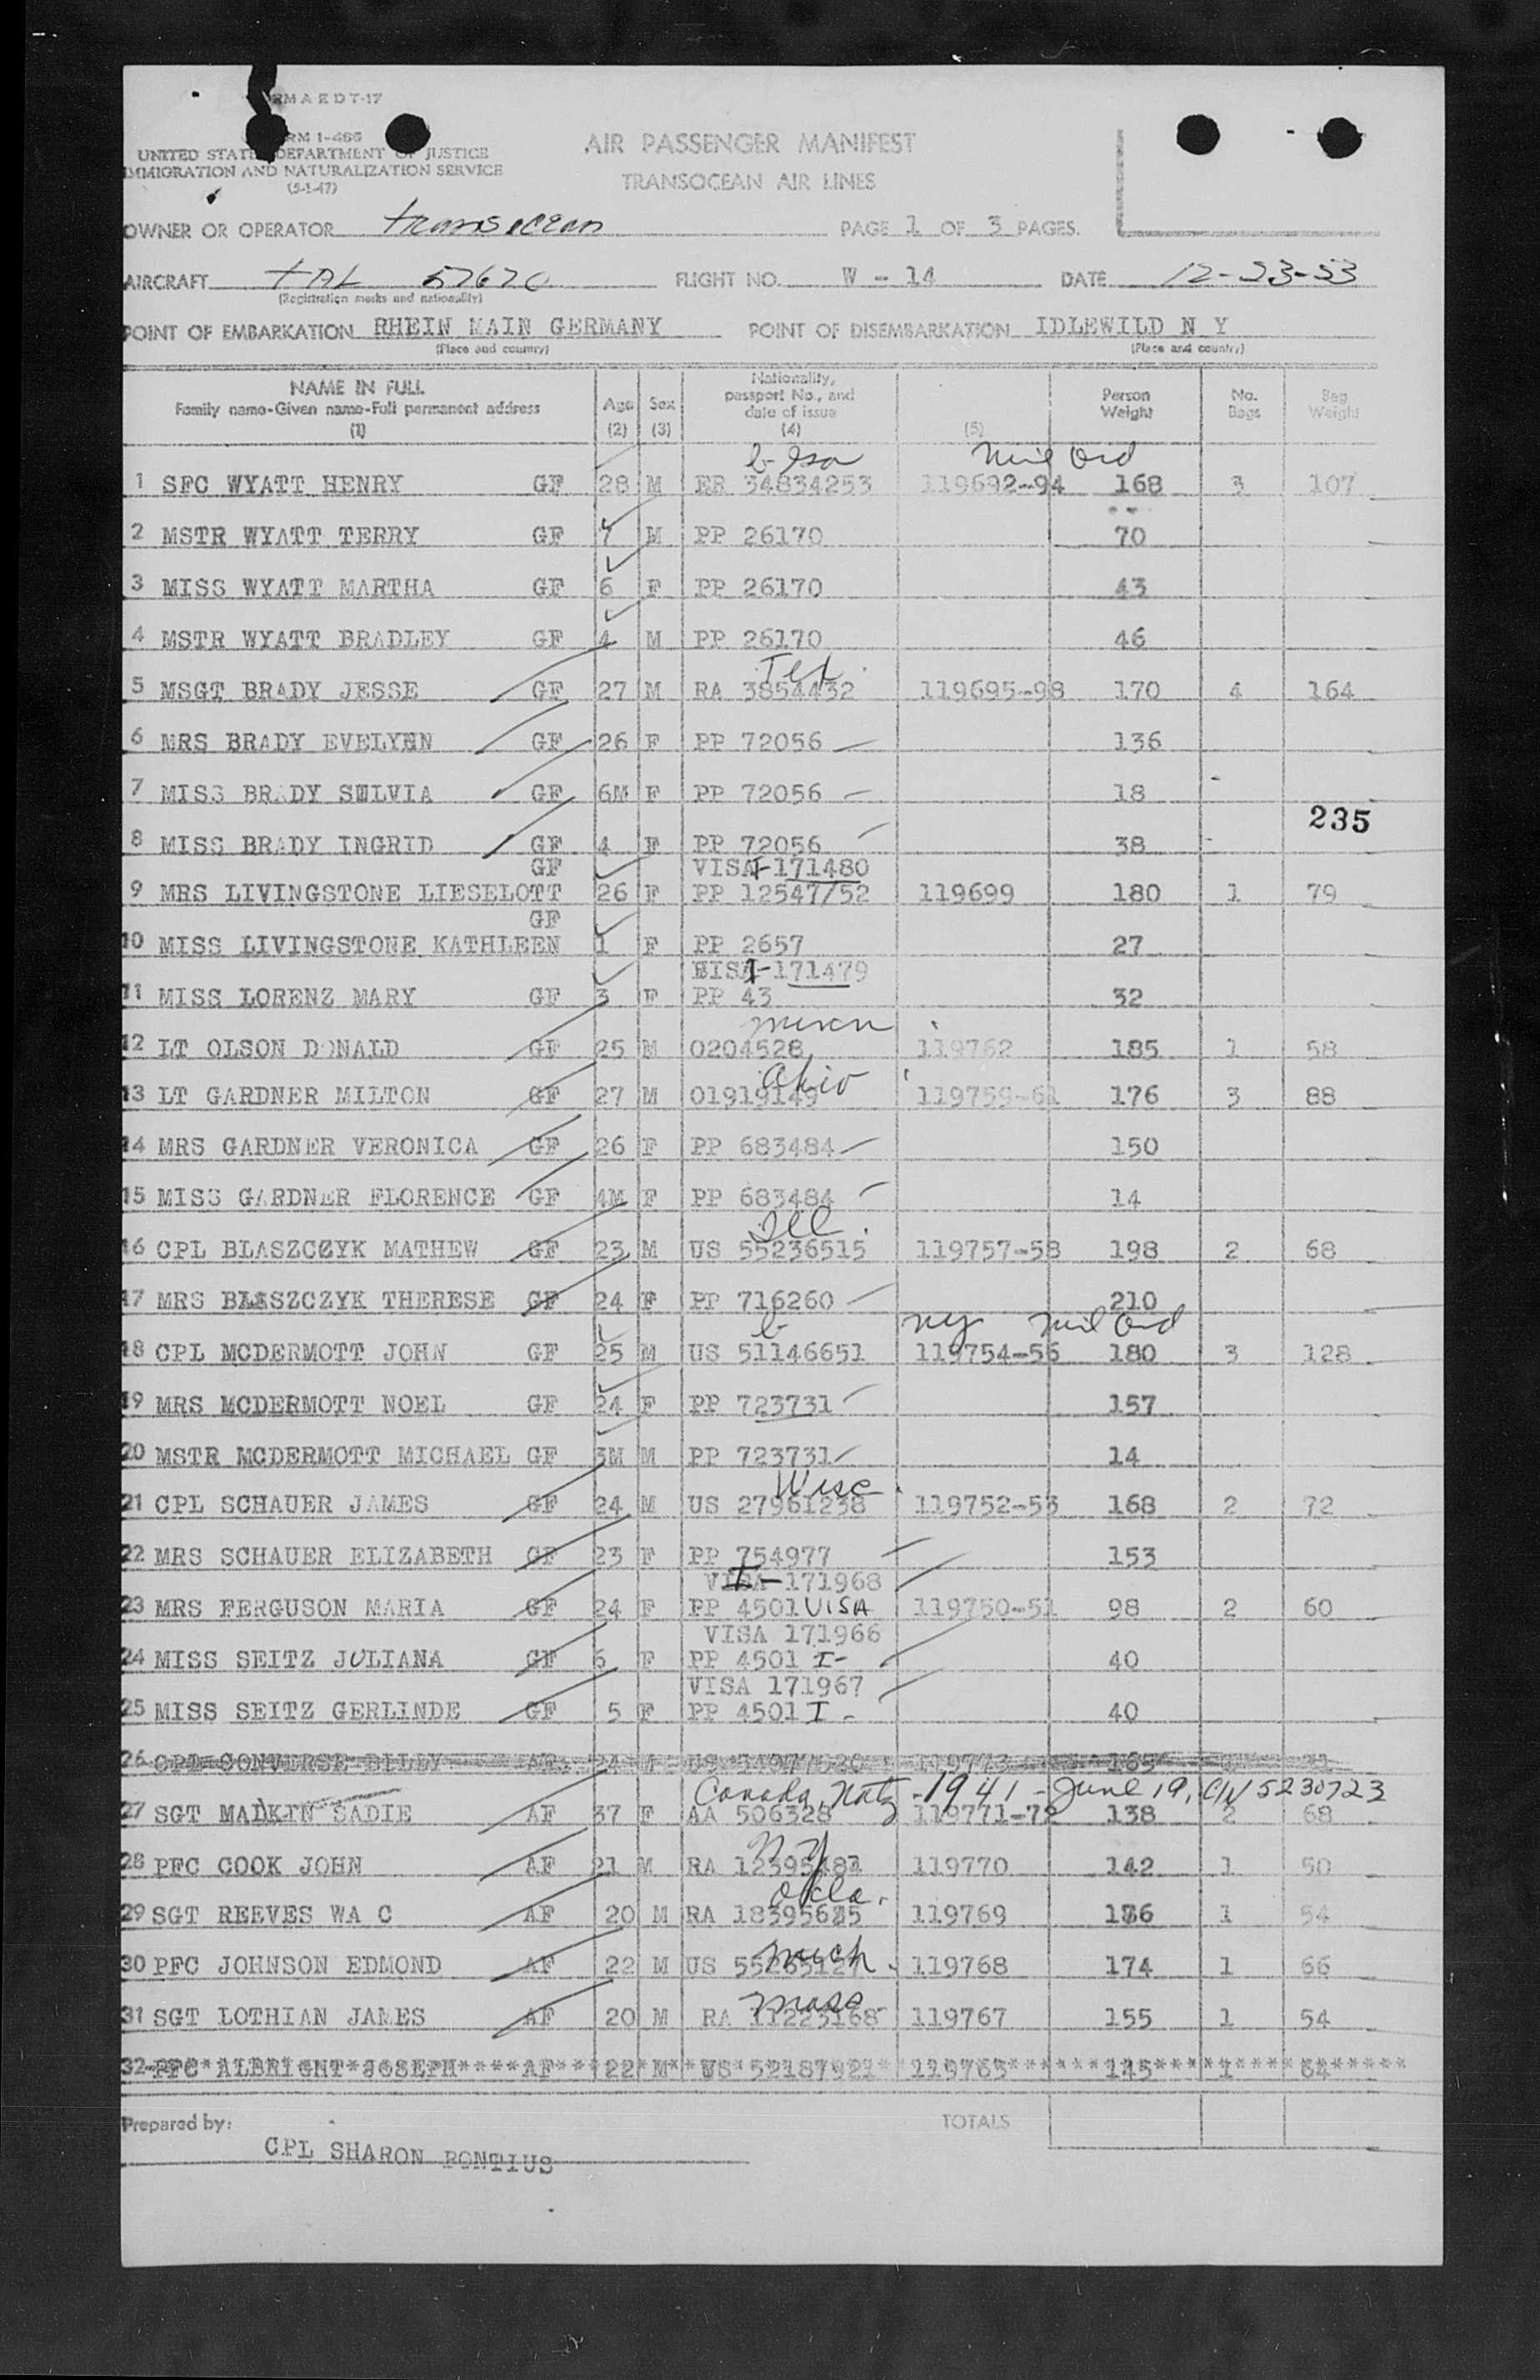 FORM A E D T-17
FORM I-466
UNITED STATES DEPARTMENT OF JUSTICE
IMMIGRATION AND NATURALIZATION SERVICE
(5-1-47)
AIR PASSENGER MANIFEST
TRANSOCEAN AIR LINES
OWNER OR OPERATOR transocean PAGE 1 OF 3 PAGES.
AIRCRAFT TAL 57670 FLIGHT NO. W - 14 DATE 12-23-53
(Registration marks and nationality)
POINT OF EMBARKATION RHEIN MAIN GERMANY POINT OF DISEMBARKATION IDLEWILD N Y
(Place and country) (Place and country)
NAME IN FULL Family name-Given name-Full permanent address (1) Age (2) Sex (3) Nationality, passport No., and date of issue (4) (5) Person Weight No. Bags Bag Weight
mil Ord
1 SFC WYATT HENRY GF 28 M ER 34834253 119692-94 168 3 107
2 MSTR WYATT TERRY GF 7 M PP 26170 70
3 MISS WYATT MARTHA GF 6 F PP 26170 43
4 MSTR WYATT BRADLEY GF 4 M PP 26170 46
Tex.
5 MSGT BRADY JESSE GF 27 M RA 3854432 119695-98 170 4 164
6 MRS BRADY EVELYNN GF 26 F PP 72056 136
7 MISS BRADY SWLVIA GF 6M F PP 72056 18
235
8 MISS BRADY INGRID GF 4 F PP 72056 38
GF VISA I-171480
9 MRS LIVINGSTONE LIESELOTT 26 F PP 12547/52 119699 180 1 79
GF
10 MISS LIVINGSTONE KATHLEEN 1 F PP 2657 27
VISA I-171479
11 MISS LORENZ MARY GF 3 F PP 43 32
12 LT OLSON DONALD GF 25 M O204528 119762 185 1 58
Ohio
13 LT GARDNER MILTON GF 27 M O1919149 119759-61 176 3 88
14 MRS GARDNER VERONICA GF 26 F PP 683484 150
15 MISS GARDNER FLORENCE GF 4M F PP 683484 14
Ill.
16 CPL BLASZCZYK MATHEW GF 23 M US 55236515 119757-58 198 2 68
17 MRS BLASZCZYK THERESE GF 24 F PP 716260 210
b ny mil Ord
18 CPL MCDERMOTT JOHN GF 25 M US 51146651 119754-56 180 3 128
19 MRS MCDERMOTT NOEL GF 24 F PP 723731 157
20 MSTR MCDERMOTT MICHAEL GF 3M M PP 723731 14
Wisc.
21 CPL SCHAUER JAMES GF 24 M US 27961238 119752-53 168 2 72
22 MRS SCHAUER ELIZABETH GF 23 F PP 754977 153
VISA I-171968
23 MRS FERGUSON MARIA GF 24 F PP 4501 VISA 119750-51 98 2 60
VISA 171966
24 MISS SEITZ JULIANA GF 6 F PP 4501 I- 40
VISA 171967
25 MISS SEITZ GERLINDE GF 5 F PP 4501 I- 40
26 CPL CONVERSE BILLY AF 24 M US 119773 165
Canada, Natz -1941 - June 19, C/N 5230723
27 SGT MALKIN SADIE AF 37 F AA 506328 119771-72 138 2 68
NY
28 PFC COOK JOHN AF 21 M RA 119770 142 1 50
Okla.
29 SGT REEVES WA C AF 20 M RA 119769 1 54
Mich.
30 PFC JOHNSON EDMOND AF 22 M US 119768 174 1 66
Mass
31 SGT LOTHIAN JAMES AF 20 M RA 11223168 119767 155 1 54
32 PFC*ALBRIGHT*JOSEPH****AF***22*M**US*52187921**119763******145****1*****64*****
Prepared by: CPL SHARON PONTIUS TOTALS